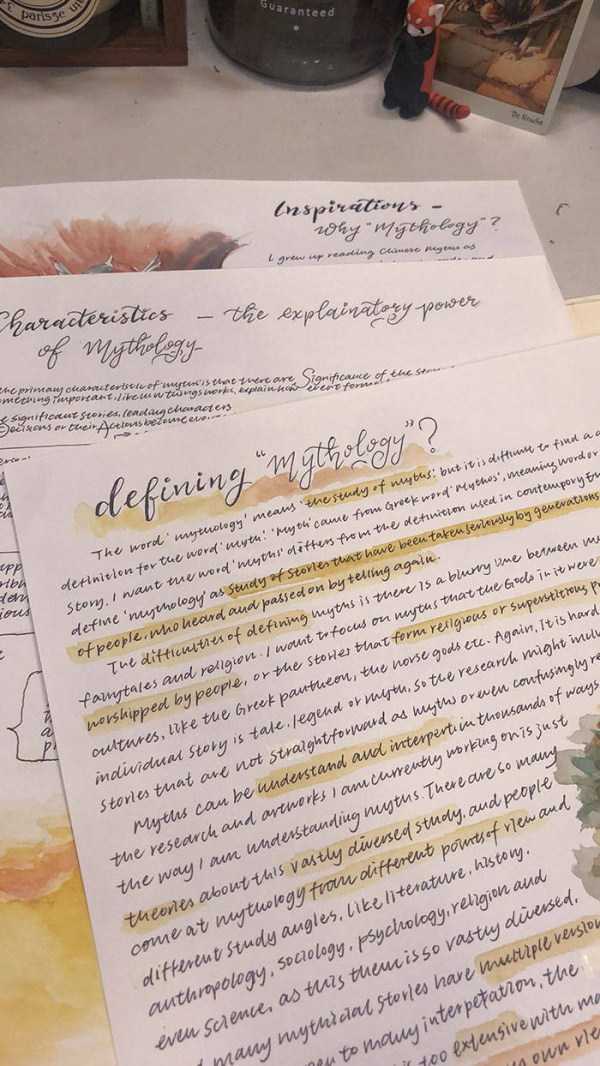 Guaranteed
Inspirations –
Why "Mythology"?
I grew up reading Chinese Myths as
Characteristics – the explainatory power
of Mythology
the primary characteristic of myths is that there are Significance of the
something important, like how things works, explain how event
significant stories, leading characters
Decisions or their Actions become
defining "Mythology"?
The word 'mythology' means 'the study of myths', but it is difficult to find a
definition for the word 'myth'. 'Myth' came from Greek word 'Mythos', meaning word or
story. I want the word 'myths' differs from the definition used in contemporary
define 'mythology' as study of stories that have been taken seriously by generations
of people, who heard and passed on by telling again.
The difficulties of defining myths is there is a blurry line between
fairytales and religion. I want to focus on myths that the Gods in it were
worshipped by people, or the stories that form religious or superstitious
cultures, like the Greek pantheon, the norse gods etc. Again, it is hard
individual story is tale, legend or myth, so the research might
stories that are not straightforward as myths or even confusingly
Myths can be understand and interpert in thousands of ways
the research and artworks I am currently working on is just
the way I am understanding myths. There are so many
theories about this vastly diversed study, and people
come at mythology from different points of view and
different study angles, like literature, history,
anthropology, sociology, psychology, religion and
even science, as this them is so vastly diversed,
many mythical stories have multiple
to many interpetation, the
too extensive with
own